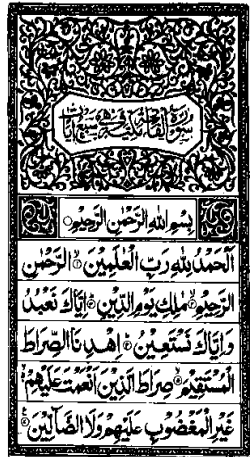 سورة الفاتحة مكية وهى سبع ايات
بسم الله الرحمن الرحيم
اَلْحَمْدُ لِلّٰهِ رَبِّ الْعٰلَمِيْنَ ۙ الرَّحْمٰنِ
الرَّحِيْمِ ۙ مٰلِكِ يَوْمِ الدِّيْنِ ؕ اِيَّاكَ نَعْبُدُ
وَاِيَّاكَ نَسْتَعِيْنُ ؕ اِهْدِنَا الصِّرَاطَ
الْمُسْتَقِيْمَ ۙ صِرَاطَ الَّذِيْنَ اَنْعَمْتَ عَلَيْهِمْ ۙ
غَيْرِ الْمَغْضُوْبِ عَلَيْهِمْ وَلَا الضَّآلِّيْنَ